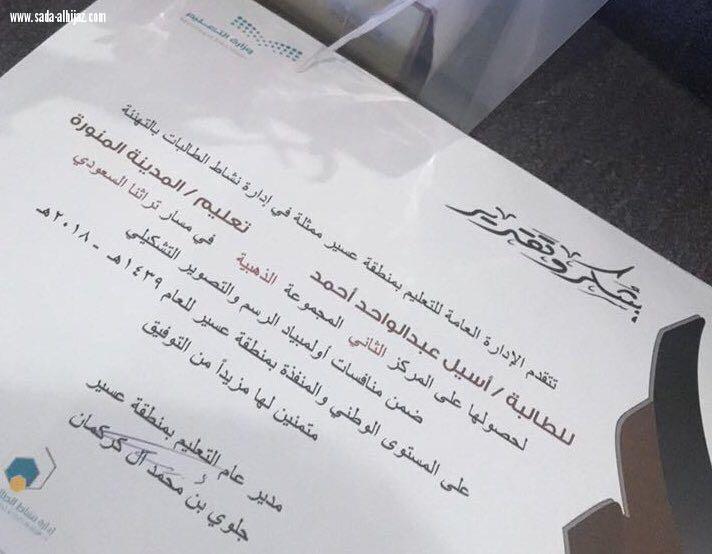 www.sada-alhijaz.com
وزارة التعليم
شكر وتقدير
تتقدم الإدارة العامة للتعليم بمنطقة عسير ممثلة في إدارة نشاط الطالبات بالتهنئة
للطالبة / أسيل عبدالواحد أحمد تعليم / المدينة المنورة
لحصولها على المركز الثاني المجموعة الذهبية في مسار تراثنا السعودي
ضمن منافسات أولمبياد الرسم والتصوير التشكيلي
على المستوى الوطني والمنفذة بمنطقة عسير للعام ١٤٣٩هـ - ٢٠١٨هـ
متمنين لها مزيداً من التوفيق
مدير عام التعليم بمنطقة عسير
جلوي بن محمد آل كركمان
إدارة نشاط